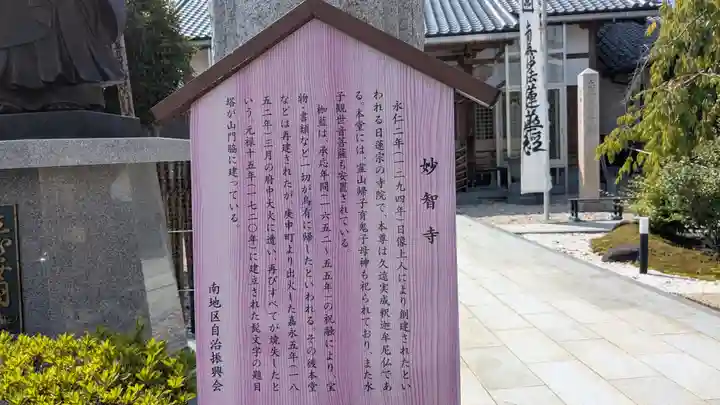 妙智寺
永仁二年(一二九四年)日像上人により創建されたとい
われる日蓮宗の寺院で、本尊は久遠実成釈迦牟尼仏であ
る。本堂には、霊山婦子育鬼子母神も祀られており、また水
子観世音菩薩も安置されている。
伽藍は、承応年間(一六五二~五五年)の祝融により、宝
物・書類など一切が烏有に帰したといわれる。その後本堂
などは再建されたが、庚申町より出火した嘉永五年(一八
五二年)三月の府中大火に遭い、再びすべてが焼失したと
いう。元禄十五年(一七二〇年)に建立された髭文字の題目
塔が山門脇に建っている。
南地区自治振興会
南無妙法蓮華経